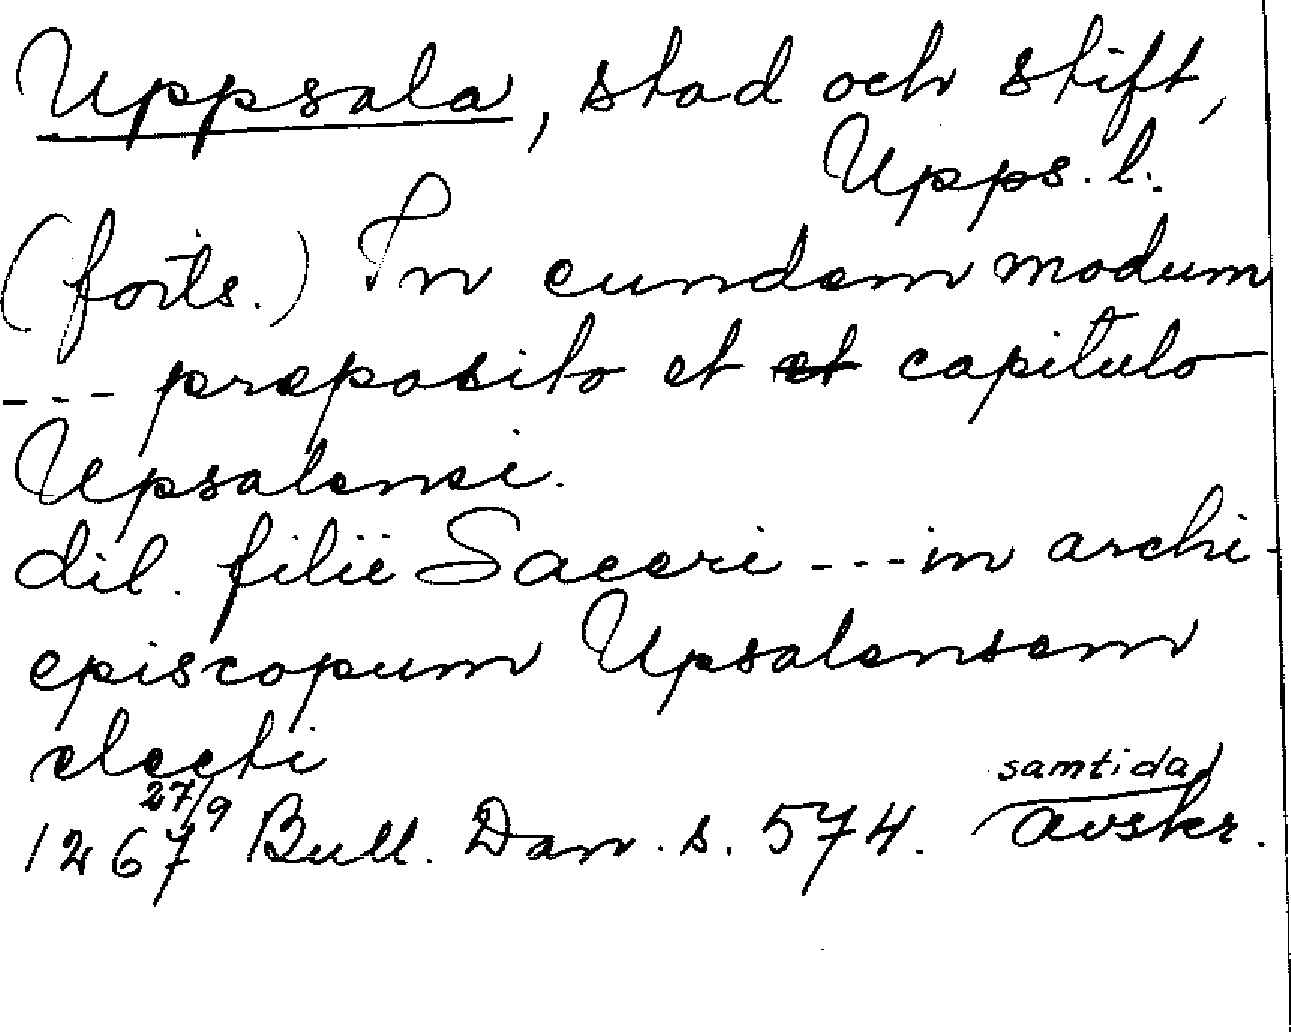 Uppsala, stad och stift,
Upps. l.
(forts.) In eundem modum
--- preposito et et capitulo
Upsalensi.
dil. filii Saceri --- in archi-
episcopum Upsalensem
electi
27/9 samtida
1267 Bull. Dan. s. 574. avskr.